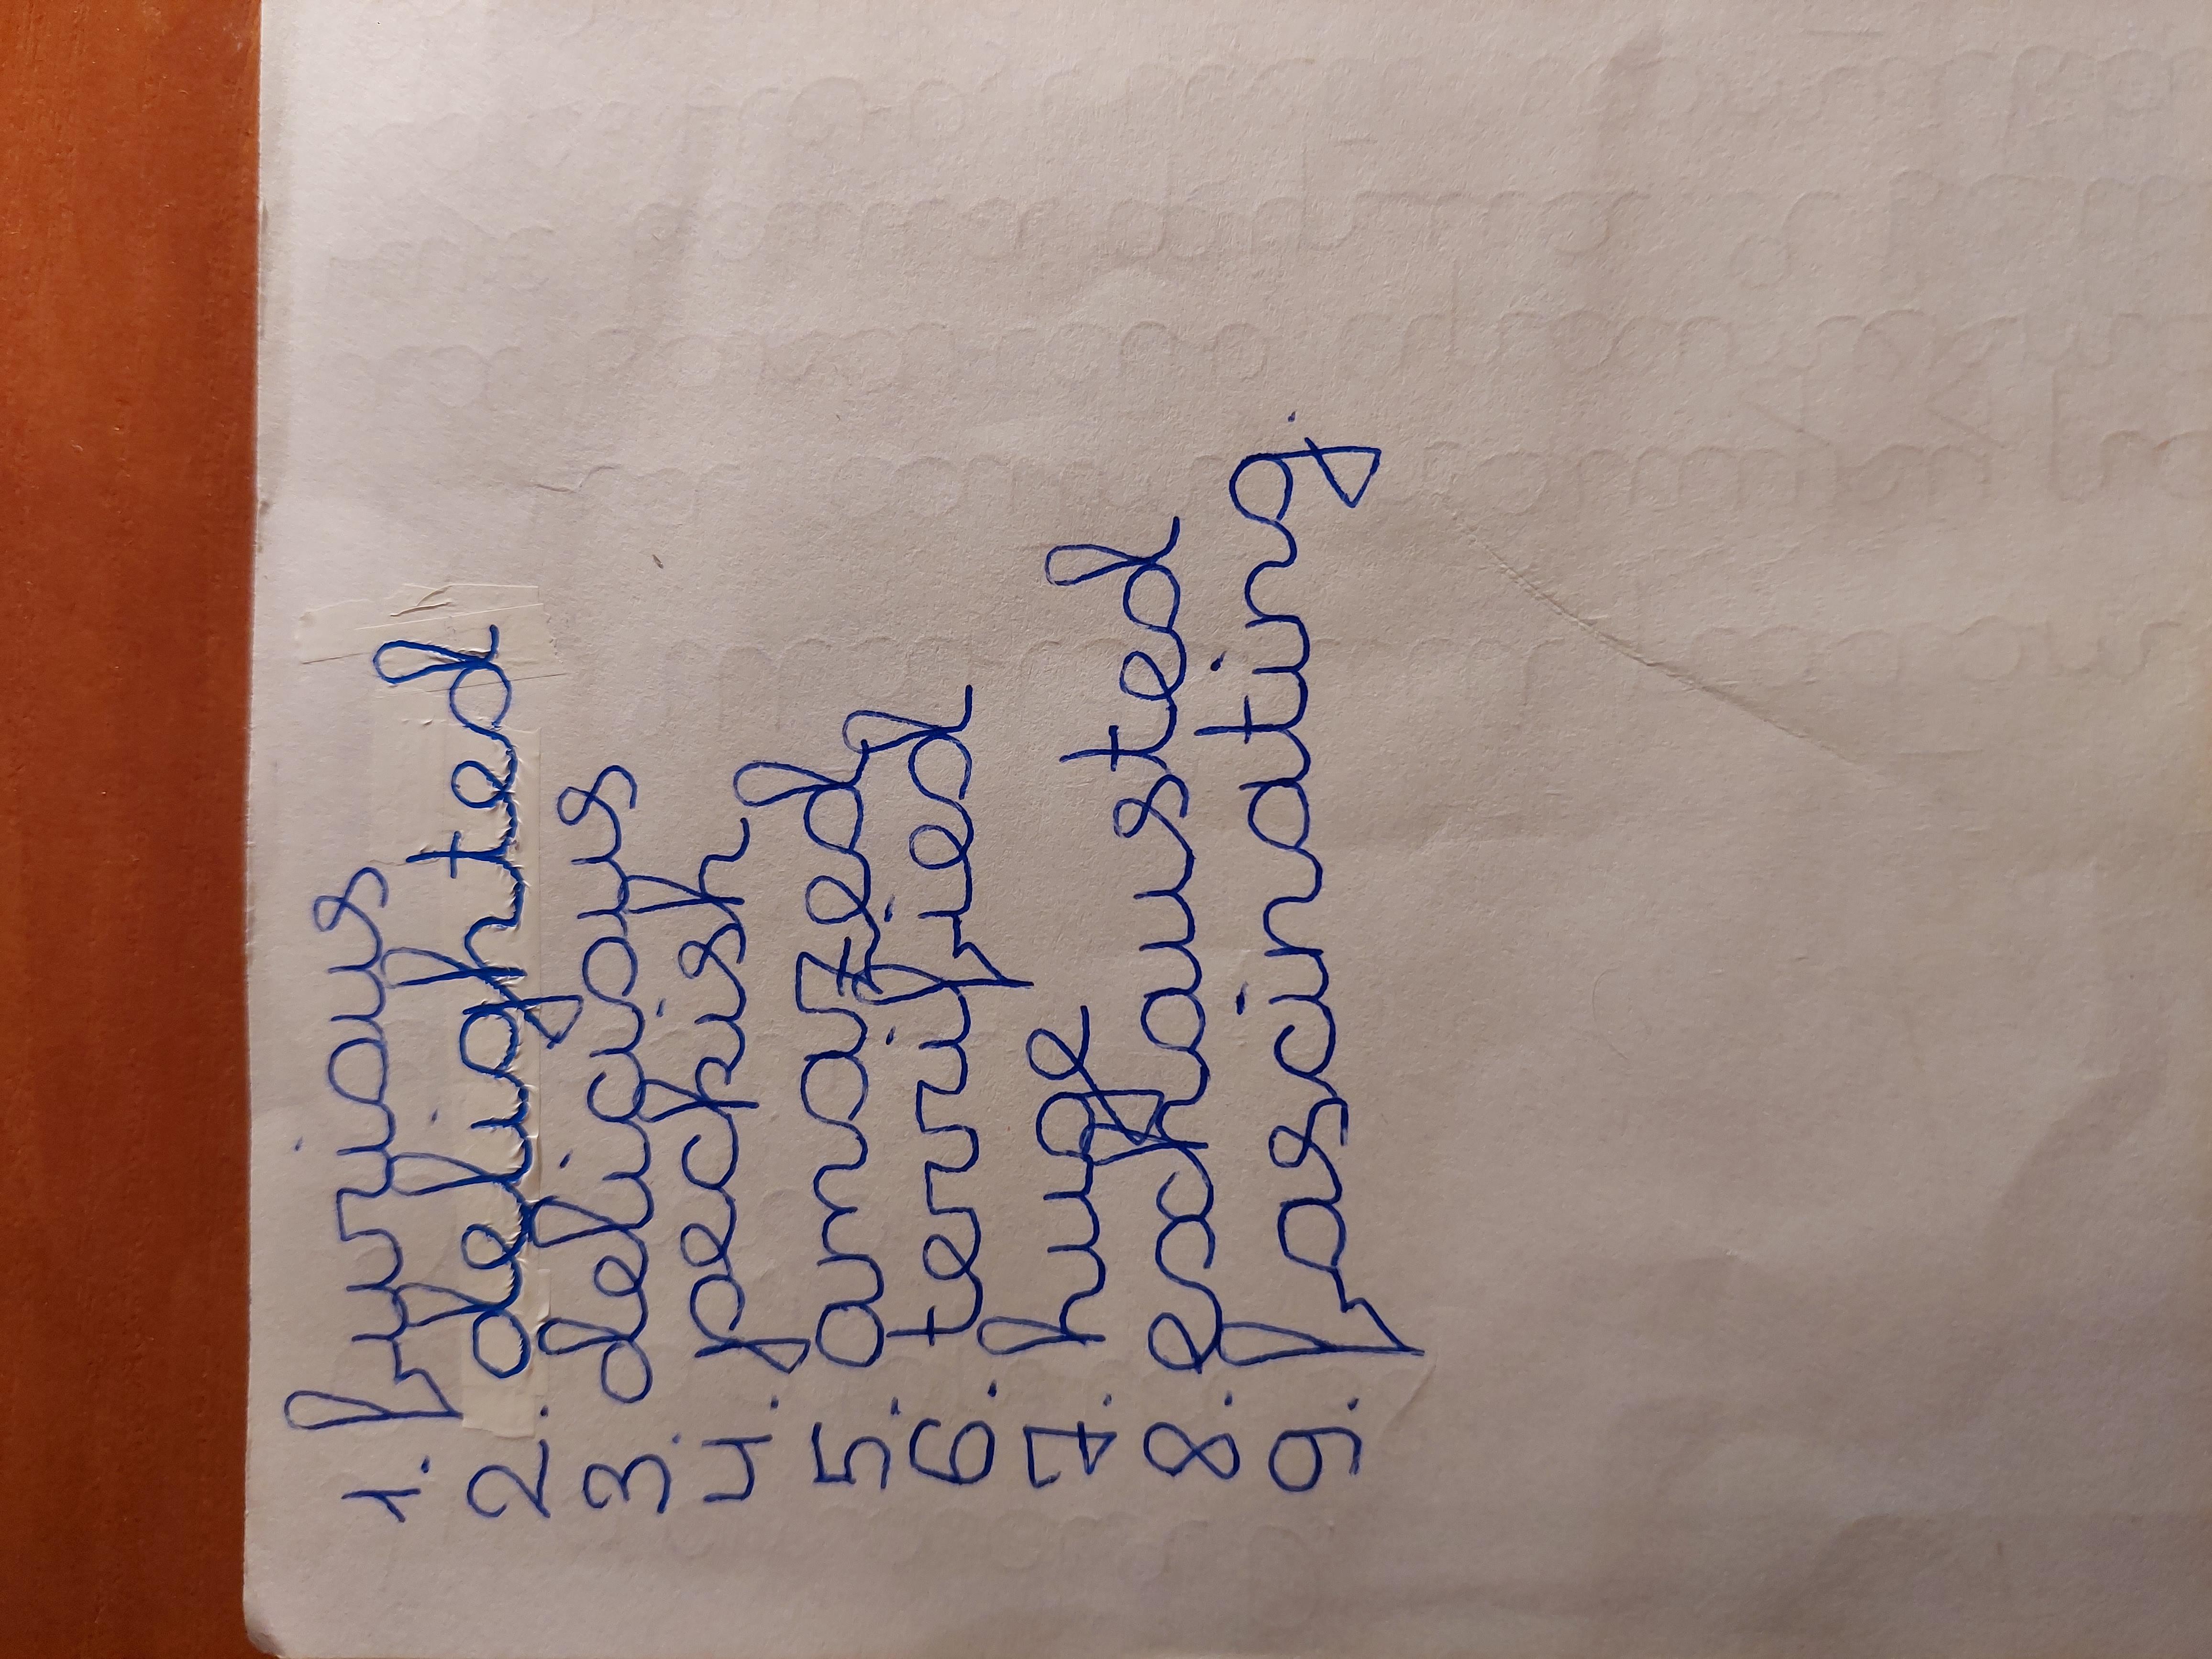 1. furious
2. delighted
3. delicious
4. peckish
5. amazed
6. terrified
7. huge
8. exhausted
9. fascinating.